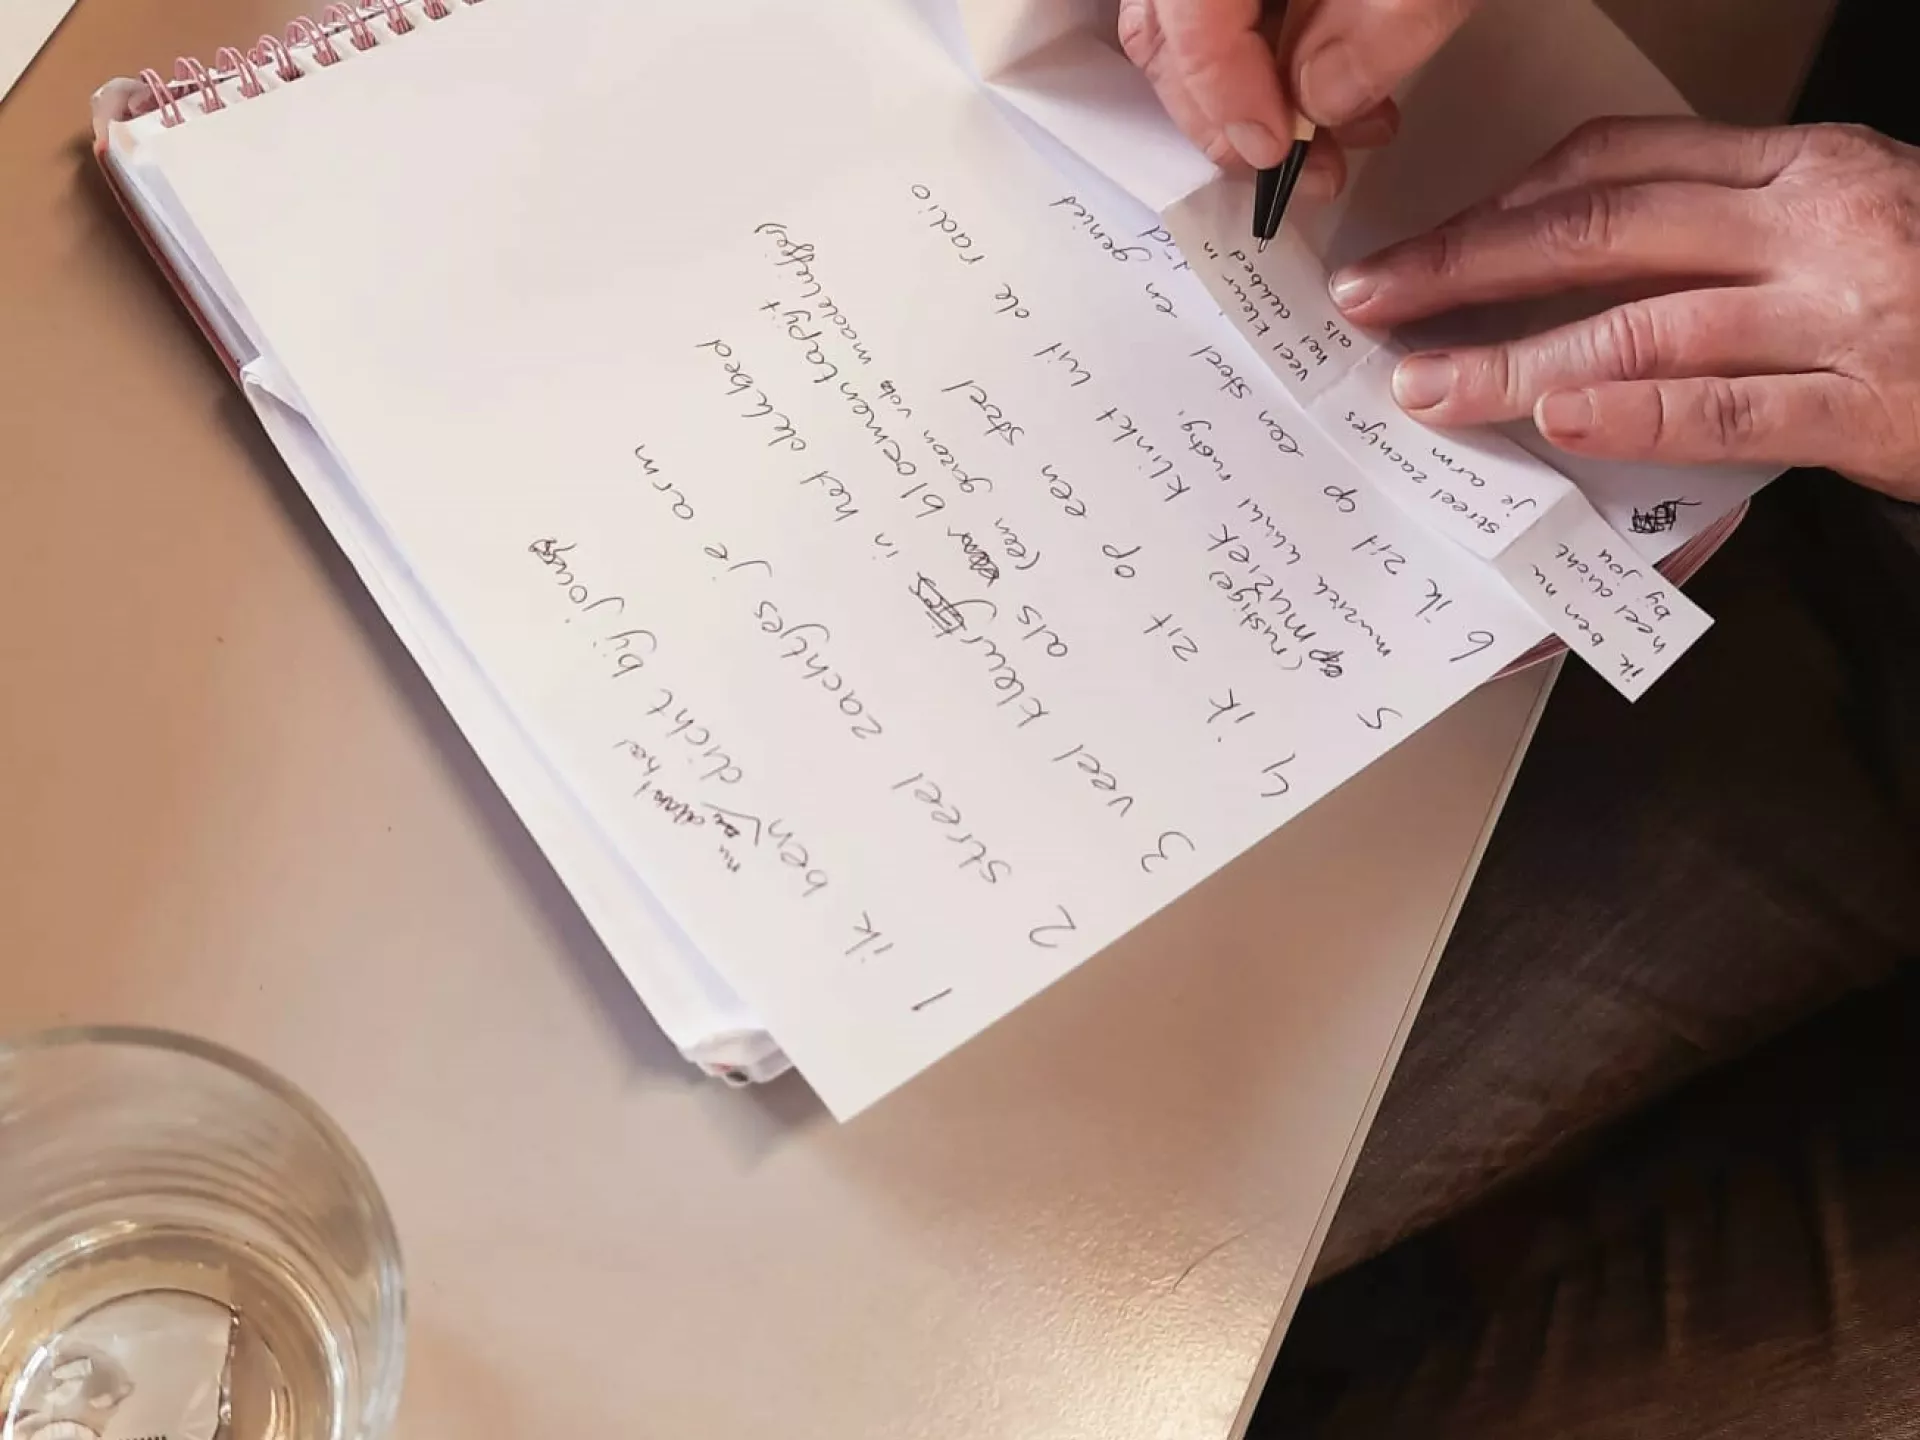 1 ik ben dicht bij jou
nu heel
2 streel zachtjes je arm
3 veel kleur in het dekbed
als bloemen tapijt
(een gazon vol madeliefjes)
4 ik zit op een stoel
5 muziek klinkt uit de radio
(rustige
muziek rustig,
6 ik zit op een stoel en geniet
ik ben nu
heel dicht
bij jou
streel zachtjes
je arm
veel kleur in
het dekbed
als